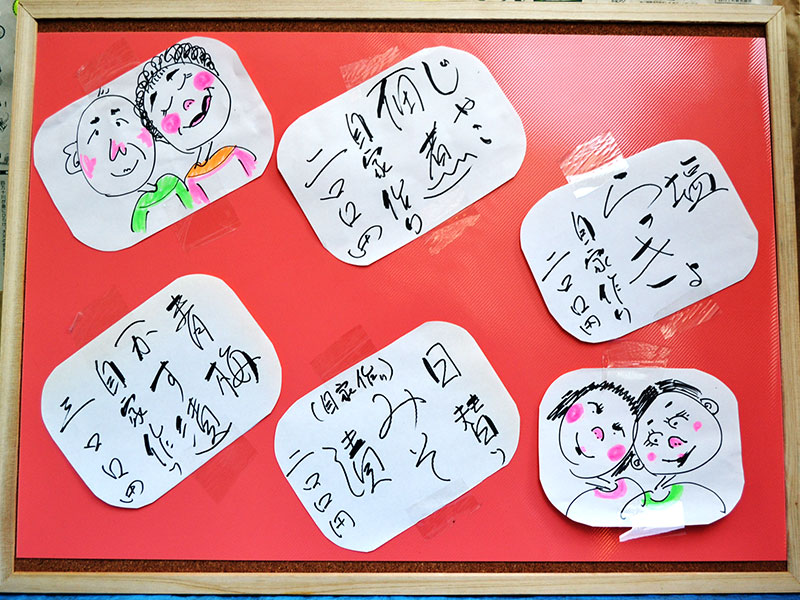 じゃこ
佃煮
自家作り
二〇〇円
塩
らっきょ
自家作り
二〇〇円
青梅
かす漬
自家作り
三〇〇円
日替り
みそ
漬
(自家作り)
二〇〇円